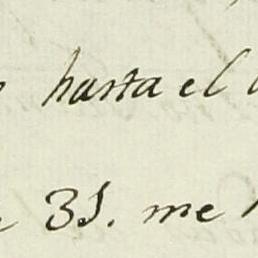 hasta el
35. me